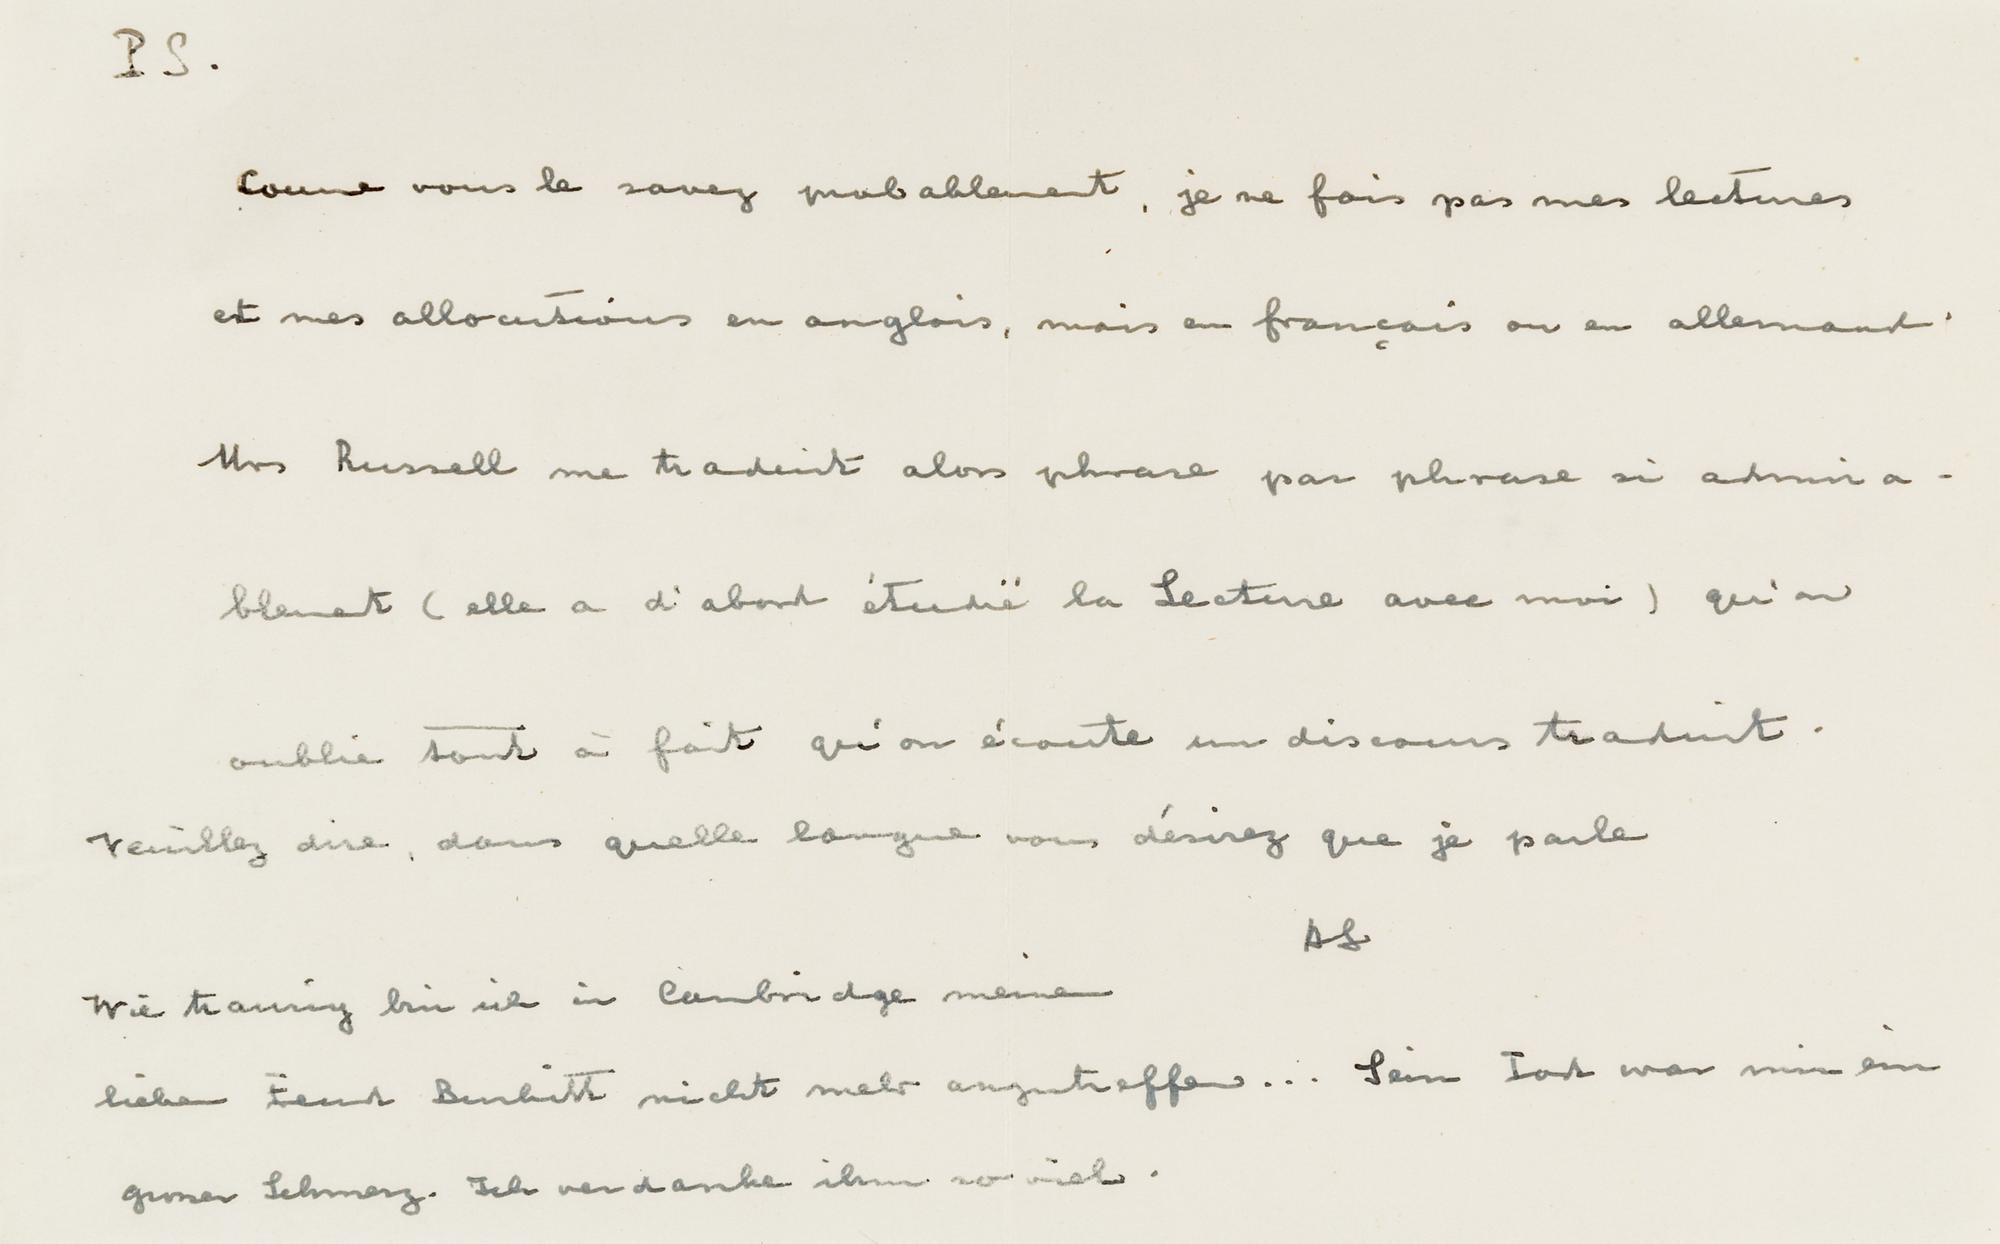 P S.
Comme vous le savez probablement, je ne fais pas mes lectures
et mes allocutions en anglais, mais en français ou en allemand.
Mrs Russell me traduit alors phrase par phrase si admira-
blement (elle a d'abord étudié la Lecture avec moi) qu'on
oublie tout à fait qu'on écoute un discours traduit.
Veuillez dire, dans quelle langue vous désirez que je parle
AS
Wie traurig bin ich in Cambridge meinen
lieben Freund Burkitt nicht mehr anzutreffen... Sein Tod war mir ein
grosser Schmerz. Ich verdanke ihm so viel.